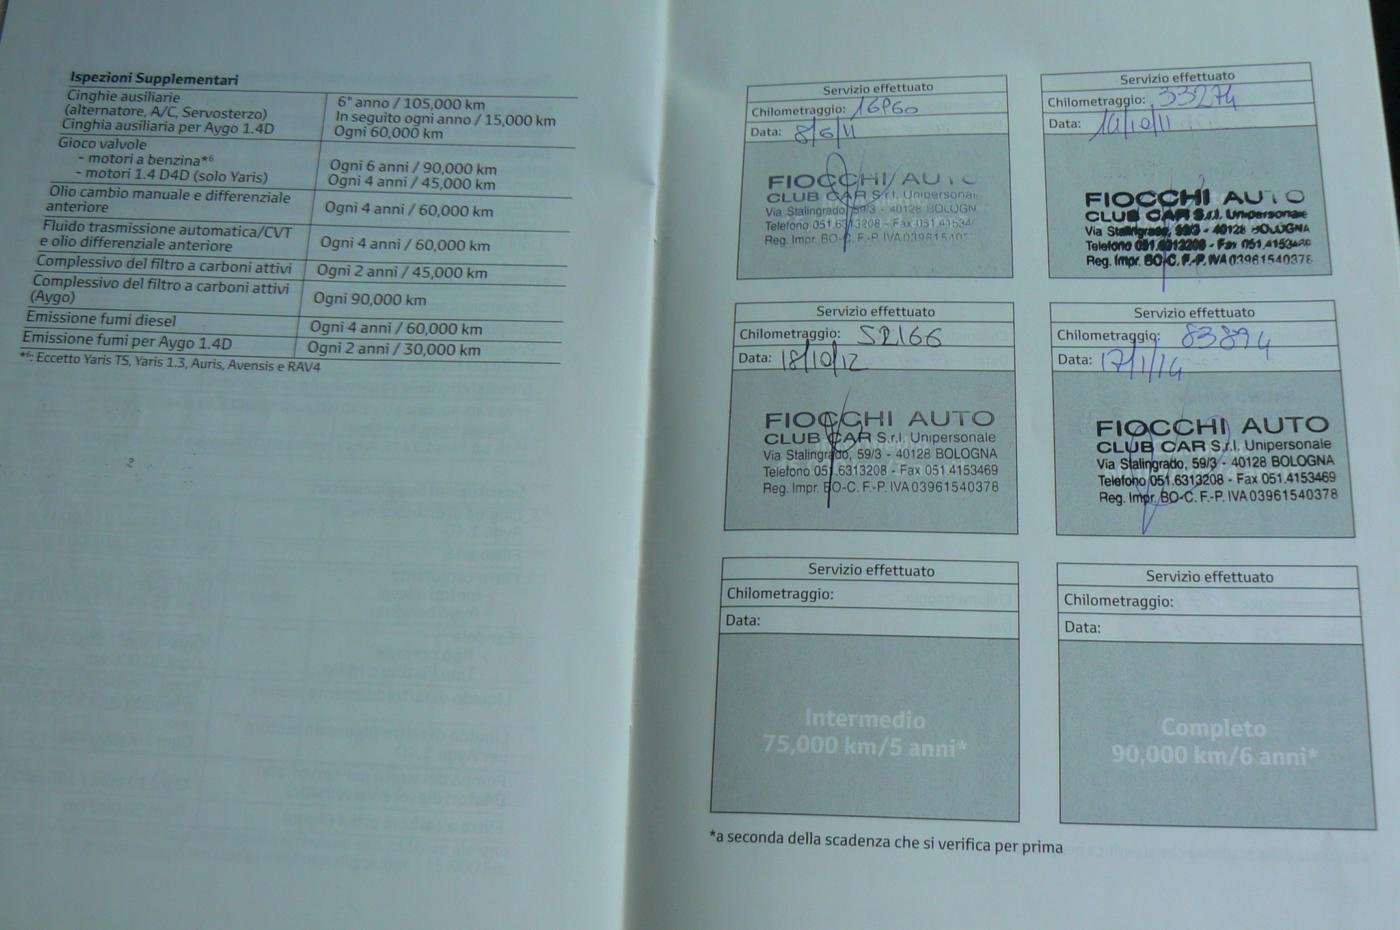 Ispezioni Supplementari
Cinghie ausiliarie
(alternatore, A/C, Servosterzo)
Cinghia ausiliaria per Aygo 1.4D
6° anno / 105,000 km
In seguito ogni anno / 15,000 km
Ogni 60,000 km
Gioco valvole
- motori a benzina*⁶
- motori 1.4 D4D (solo Yaris)
Ogni 6 anni / 90,000 km
Ogni 4 anni / 45,000 km
Olio cambio manuale e differenziale
anteriore
Ogni 4 anni / 60,000 km
Fluido trasmissione automatica/CVT
e olio differenziale anteriore
Ogni 4 anni / 60,000 km
Complessivo del filtro a carboni attivi
Ogni 2 anni / 45,000 km
Complessivo del filtro a carboni attivi
(Aygo)
Ogni 90,000 km
Emissione fumi diesel
Ogni 4 anni / 60,000 km
Emissione fumi per Aygo 1.4D
Ogni 2 anni / 30,000 km
*⁶: Eccetto Yaris TS, Yaris 1.3, Auris, Avensis e RAV4
Servizio effettuato
Chilometraggio:
Data: 8/6/11
FIOCCHI AUT
CLUB CAR S.r.l. Unipersonal
Via Stalingrado, 59/3 - 40128 BOLOGN
Telefono 051.6313208 - Fax 051.41534
Reg. Impr. BO-C. F.-P. IVA 0396154037
Servizio effettuato
Chilometraggio: 33274
Data: 14/10/11
FIOCCHI AUTO
CLUB CAR S.r.l. Unipersonale
Via Stalingrado, 59/3 - 40128 BOLOGNA
Telefono 051.6313208 - Fax 051.4153469
Reg. Impr. BO-C. F.-P. IVA 03961540378
Servizio effettuato
Chilometraggio: 52166
Data: 18/10/12
FIOCCHI AUTO
CLUB CAR S.r.l. Unipersonale
Via Stalingrado, 59/3 - 40128 BOLOGNA
Telefono 051.6313208 - Fax 051.4153469
Reg. Impr. BO-C. F.-P. IVA 03961540378
Servizio effettuato
Chilometraggio: 83894
Data: 17/1/14
FIOCCHI AUTO
CLUB CAR S.r.l. Unipersonale
Via Stalingrado, 59/3 - 40128 BOLOGNA
Telefono 051.6313208 - Fax 051.4153469
Reg. Impr. BO-C. F.-P. IVA 03961540378
Servizio effettuato
Chilometraggio:
Data:
Intermedio
75,000 km/5 anni*
Servizio effettuato
Chilometraggio:
Data:
Completo
90,000 km/6 anni*
*a seconda della scadenza che si verifica per prima